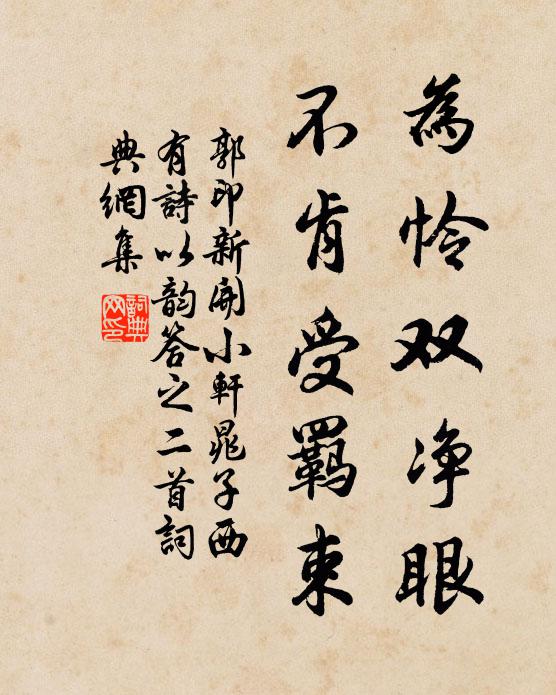 為怜双净眼
不肯受羈束
郭印新開小軒晁子西
有詩以韵答之二首詞
典網集
詞典网印